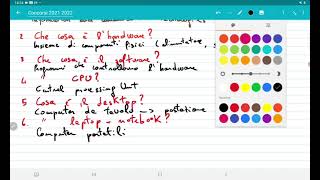 Concorsi 2021 2022
2 Che cosa è l'hardware?
Insieme di componenti fisici (alimentatore,
3. Che cosa è il software?
Programmi che controllano l'hardware
4 " CPU?
Central processing Unit
5 Cosa è il desktop?
Computer da tavolo -> postazione
6. " laptop - notebook?
Computer portatili